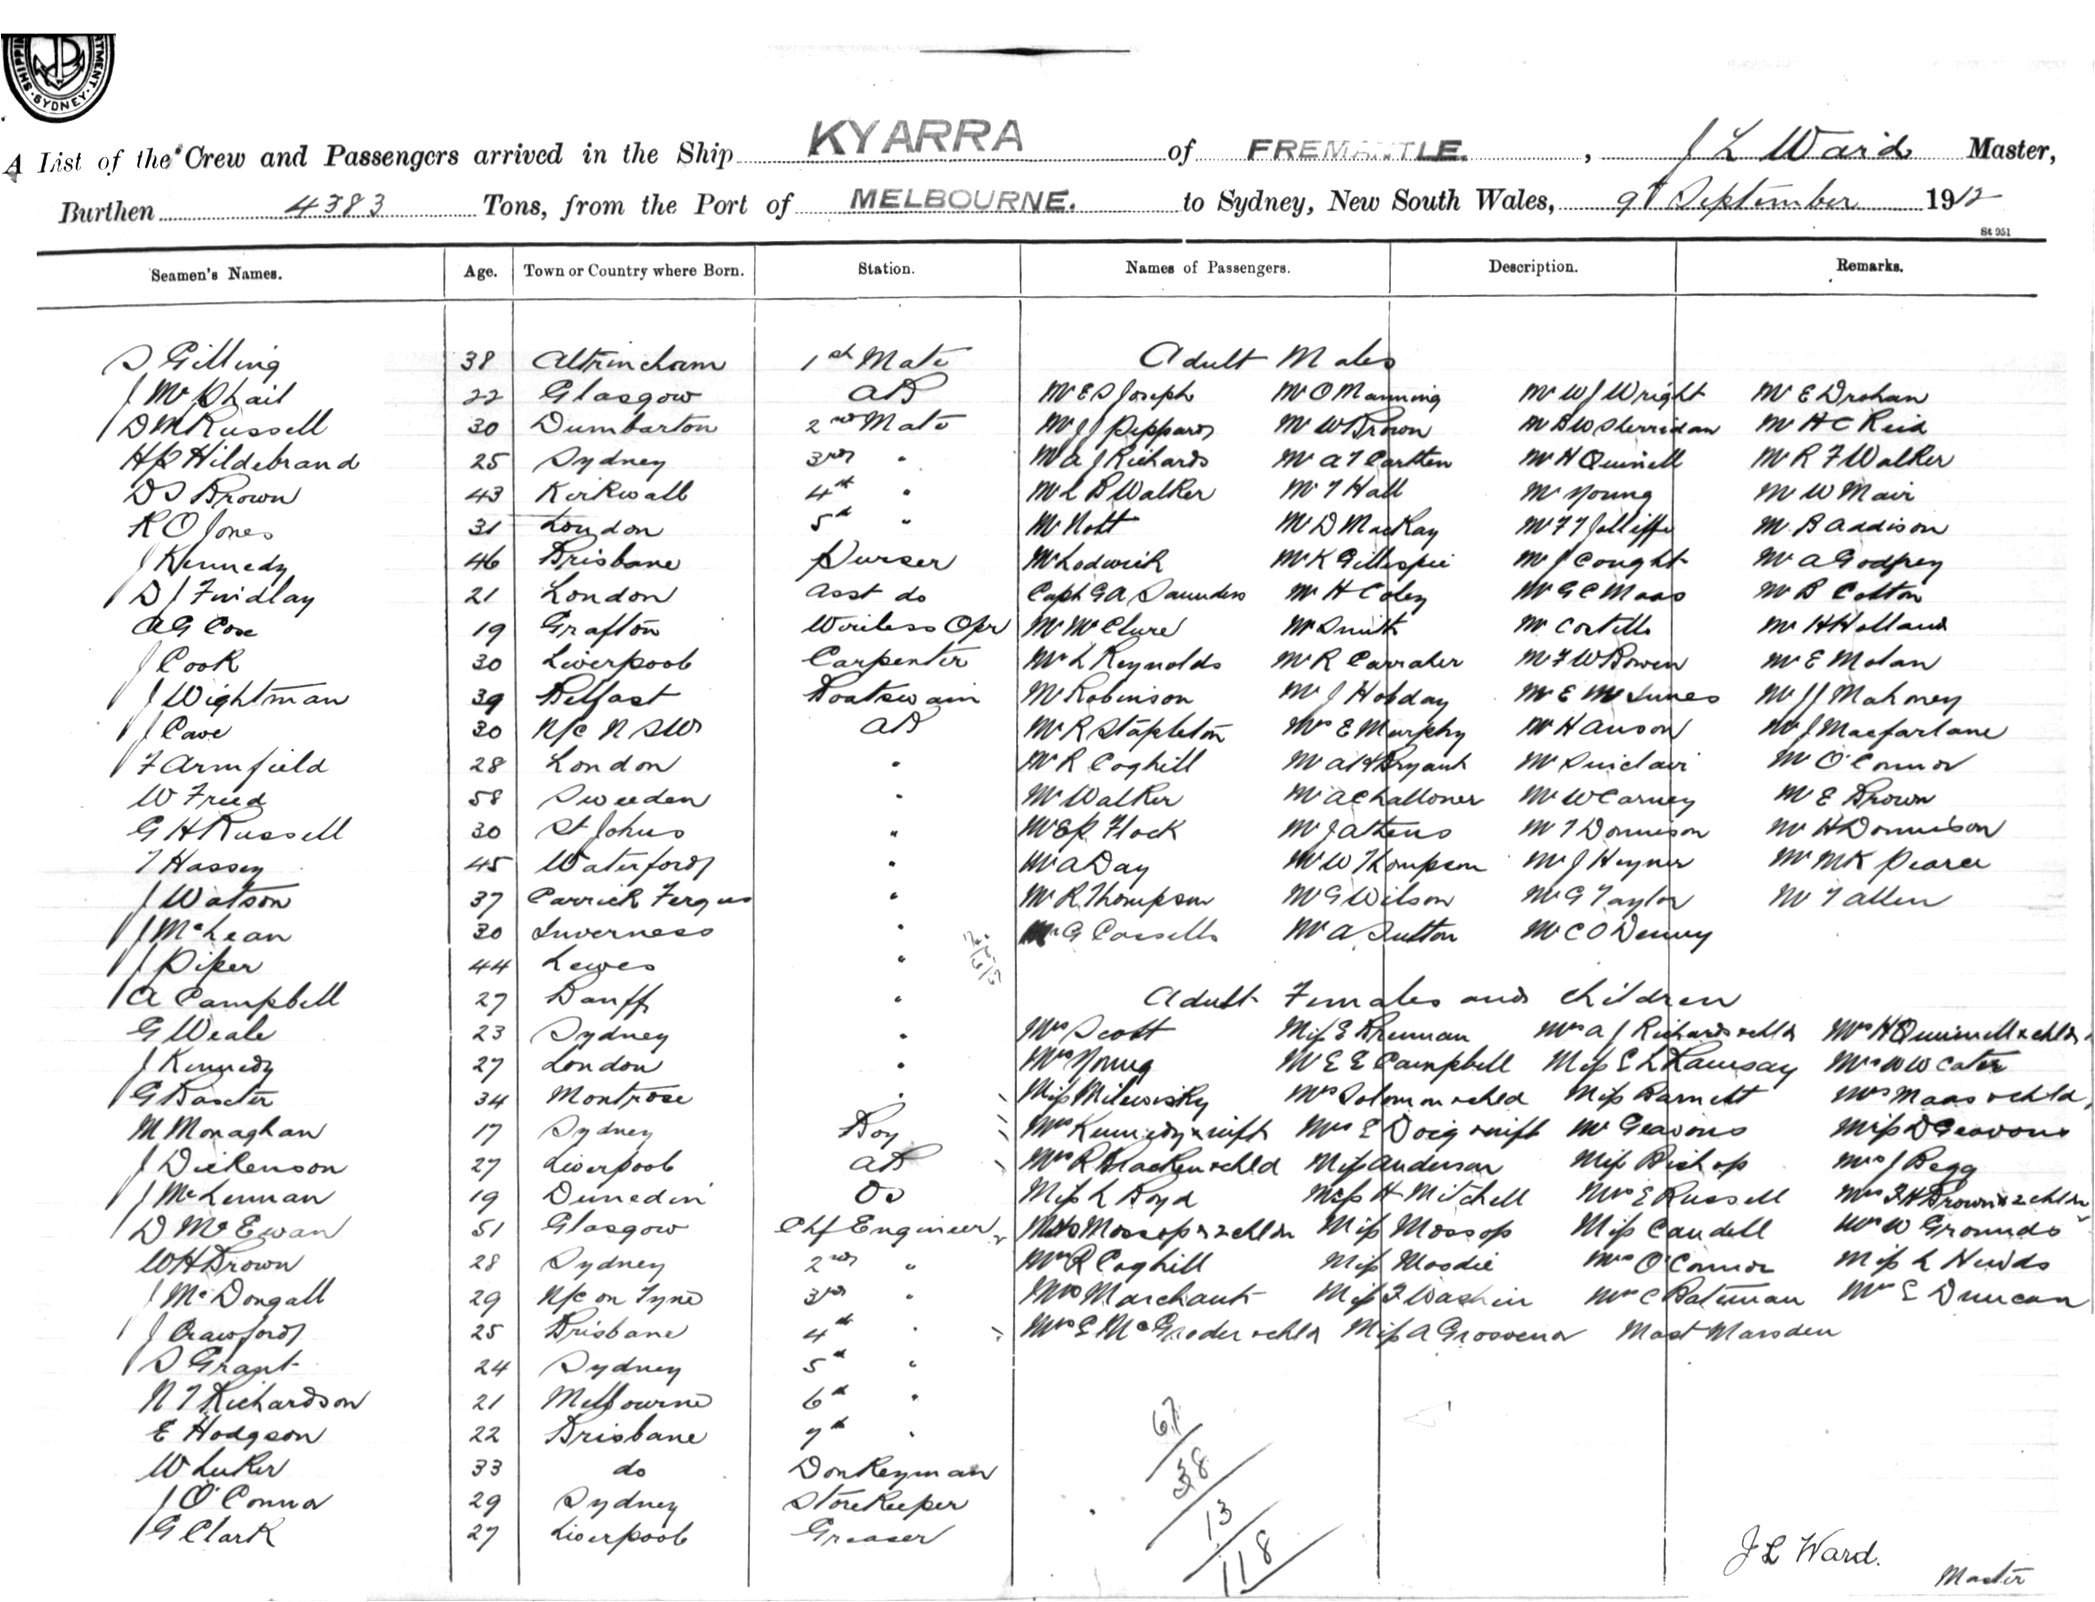 SHIPPING DEPARTMENT. SYDNEY.
A List of the Crew and Passengers arrived in the Ship KYARRA of FREMANTLE. , J L Ward Master,
Burthen 4383 Tons, from the Port of MELBOURNE. to Sydney, New South Wales, 9th September 1912
St 951
Seamen's Names. Age. Town or Country where Born. Station. Names of Passengers. Description. Remarks.
S Gilling 38 Altrincham 1st Mate Adult Males
J McPhail 22 Glasgow AB Mr E S Joseph Mr O Manning Mr W J Wright Mr E Drohan
D M Russell 30 Dumbarton 2nd Mate Mr J J Peppard Mr W Brown Mr B W Sherridan Mr H C Reid
H P Hildebrand 25 Sydney 3rd " Mr A J Richards Mr A T Carthen Mr H Quinell Mr R F Walker
D S Brown 43 Kirkwall 4th " Mr L B Walker Mr T Hall Mr Young Mr W Mair
R O Jones 31 London 5th " Mr Nott Mr D MacKay Mr F T Jolliffe Mr B Addison
J Kennedy 46 Brisbane Purser Mr Lodwick Mr K Gillespie Mr J Cought Mr A Godfrey
D J Findlay 21 London Asst do Capt G A Saunders Mr H Coley Mr G C Maas Mr B Cotton
A G Cox 19 Grafton Wireless Opr Mr McClure Mr Smith Mr Costello Mr H Holland
J Cook 30 Liverpool Carpenter Mr L Reynolds Mr R Carraher Mr F W Bowen Mr E Molan
J Wightman 39 Belfast Boatswain Mr Robinson Mr J Hobday Mr E McInnes Mr J J Mahoney
J Cave 30 N/c N SW AB Mr R Stapleton Mr E Murphy Mr H Anson Mr J Macfarlane
F Armfield 28 London " Mr R Coghill Mr A H Bryant Mr Sinclair Mr O'Connor
W Freed 58 Sweeden " Mr Walker Mr A Challoner Mr W Carney Mr E Brown
G H Russell 30 St Johns " Mr E P Flock Mr J Athens Mr T Donnison Mr H Donnison
T Hassey 45 Waterford " Mr A Day Mr W Thompson Mr J Heyner Mr M K Pearce
J Watson 37 Carrick Fergus " Mr R Thompson Mr G Wilson Mr G Taylor Mr T Allen
J McLean 30 Inverness " Mr G Cassells Mr A Sutton Mr C O Denny
J Piper 44 Lewes "
A Campbell 27 Banff " Adult Females and Children
G Weale 23 Sydney " Mrs Scott Miss E Brennan Mrs A J Richards & chld Mrs H Quinnell & chldn
J Kennedy 27 London " Mrs Young Mr E E Campbell Miss E L Ramsay Mrs W W Cater
G Baxter 34 Montrose " Miss Milewisky Mrs Solomon & chld Miss Barnett Mrs Maas & chld
M Monaghan 17 Sydney Boy Mrs Kennedy & inft Mrs E Doig & inft Mr Geavons Miss D Geavons
J Dickenson 27 Liverpool AB Mrs R Bracken & chld Miss Anderson Miss Bishop Mrs J Begg
J McLennan 19 Dunedin OS Miss L Boyd Miss H Mitchell Mrs E Russell Mrs F H Brown & 2 chldn
D McEwan 51 Glasgow Chf Engineer Mrs Mossop & 2 chldn Miss Mossop Miss Caudell Mrs W Grounds
W H Brown 28 Sydney 2nd " Mrs R Coghill Miss Moodie Mrs O'Connor Miss L Newds
J McDongall 29 N/c on Tyne 3rd " Mrs Marchant Miss F Washin Mrs C Bateman Mrs E Duncan
J Crawford 25 Brisbane 4th " Mrs E McGroder & chld Miss A Grosvenor Mast Marsden
S Grant 24 Sydney 5th "
N T Richardson 21 Melbourne 6th "
E Hodgson 22 Brisbane 7th "
W Luker 33 do Donkeyman
J O'Connor 29 Sydney Storekeeper
G Clark 27 Liverpool Greaser
67
38
13
118
J L Ward.
Master